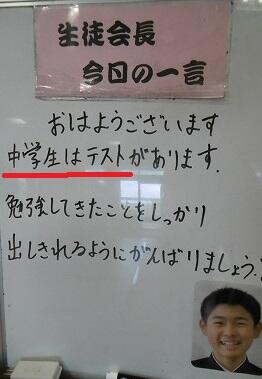 生徒会長
今日の一言
おはようございます
中学生はテストがあります.
勉強してきたことをしっかり
出しきれるようにがんばりましょう.